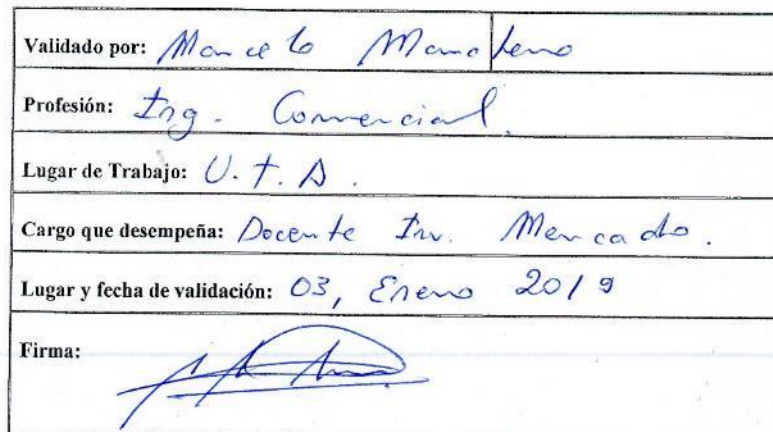 Validado por: Marcelo Mancheno
Profesión: Ing. Comercial.
Lugar de Trabajo: U.T.A.
Cargo que desempeña: Docente Inv. Mercado.
Lugar y fecha de validación: 03, Enero 2019
Firma: